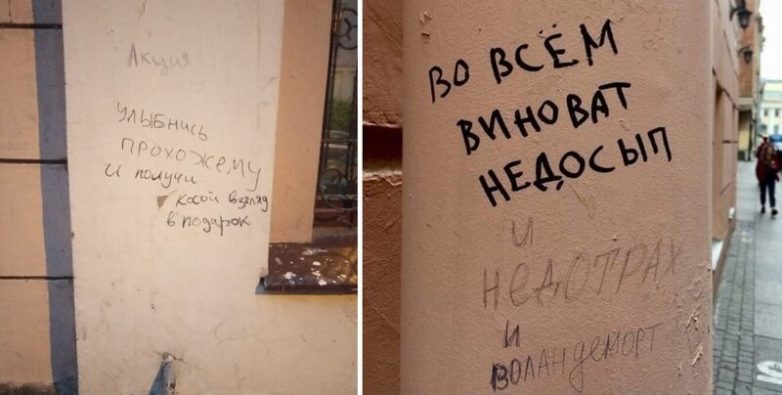 Акция
улыбнись
прохожему
и получи
косой взгляд
в подарок
ВО ВСЁМ
ВИНОВАТ
НЕДОСЫП
и
НЕДОТРАХ
и
ВОЛАНДЕМОРТ